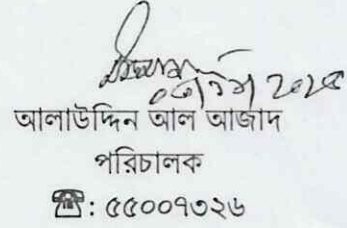 আলাউদ্দিন আল আজাদ
পরিচালক
☎: ৫৫০০৭৩২৬